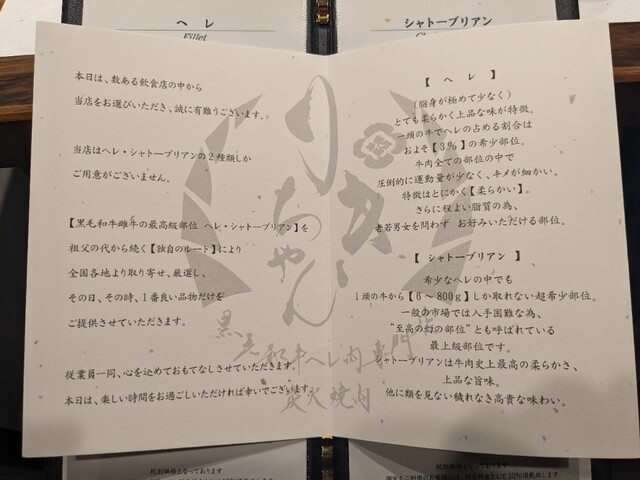 ヘレ
Fillet
シャトーブリアン
本日は、数ある飲食店の中から
当店をお選びいただき、誠に有難うございます。
当店はヘレ・シャトーブリアンの2種類しか
ご用意がございません。
【黒毛和牛雌牛の最高級部位 ヘレ・シャトーブリアン】を
祖父の代から続く【独自のルート】により
全国各地より取り寄せ、厳選し、
その日、その時、1番良い品物だけを
ご提供させていただきます。
従業員一同、心を込めておもてなしさせていただきます。
本日は、楽しい時間をお過ごしいただければ幸いでございます。
【 ヘレ 】
(脂身が極めて少なく)
とても柔らかく上品な味が特徴。
一頭の牛でヘレの占める割合は
およそ【3%】の希少部位。
牛肉全ての部位の中で
圧倒的に運動量が少なく、キメが細かい。
特徴はとにかく【柔らかい】。
さらに程よい脂質の為、
老若男女を問わず お好みいただける部位。
【 シャトーブリアン 】
希少なヘレの中でも
1頭の牛から【6〜800g】しか取れない超希少部位。
一般の市場では入手困難な為、
“至高の幻の部位”とも呼ばれている
最上級部位です。
シャトーブリアンは牛肉史上最高の柔らかさ、
上品な旨味。
他に類を見ない穢れなき高貴な味わい。
炭火焼肉
税別価格となっております
税別価格となっております